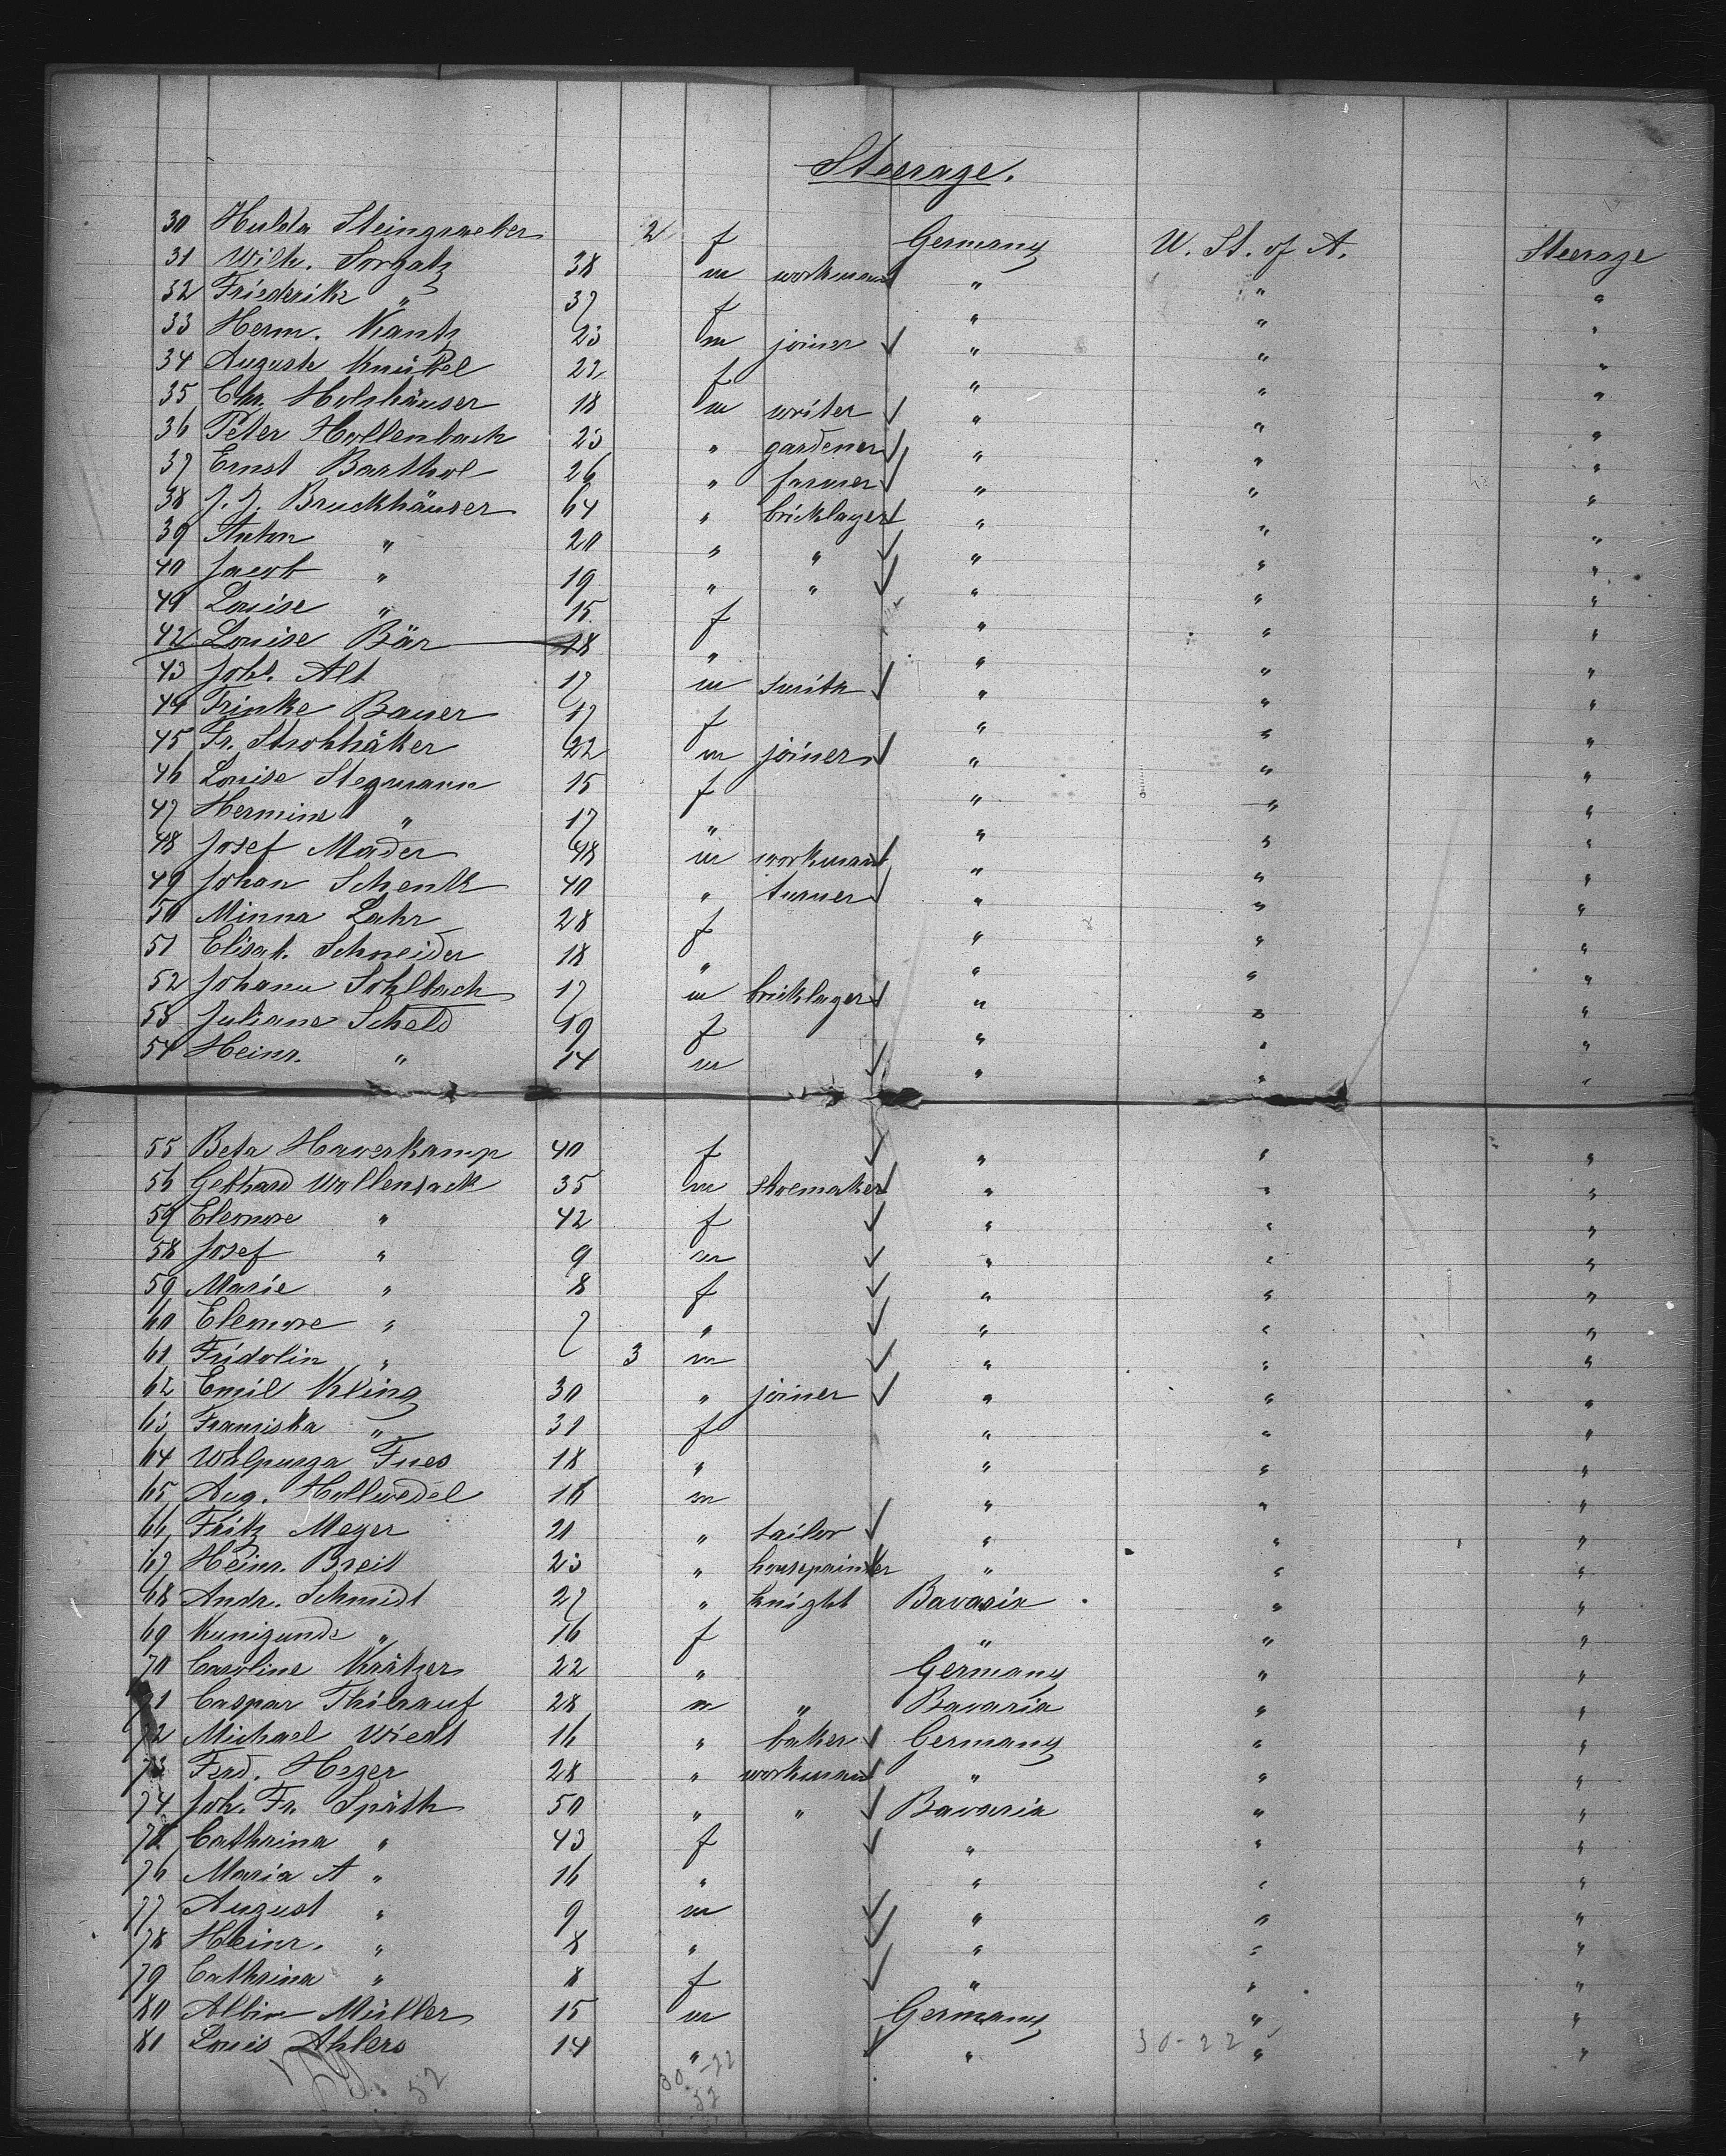 Steerage.
30 Hulda Steingraeber 2 f Germany U. St. of A. Steerage
31 Wilh. Sorgatz 38 m workman " " "
32 Friederike " 37 f " " "
33 Herm. Kantz 23 m joiner " " "
34 Auguste Knükel 22 f " " "
35 Chr. Holzhäuser 18 m writer " " "
36 Peter Hollenbach 23 " gardener " " "
37 Ernst Barthol 26 " farmer " " "
38 J. J. Bruckhäuser 64 " bricklayer " " "
39 Anton " 20 " " " " "
40 Jacob " 19 " " " " "
41 Louise " 15 f " " "
42 Louise Bär 18 " " " "
43 Joh. Alt 17 m smith " " "
44 Frinke Bauer 17 f " " "
45 Fr. Strohhäker 22 m joiner " " "
46 Louise Stegmann 15 f " " "
47 Hermine " 17 " " " "
48 Josef Mader 48 m workman " " "
49 Johan Schenk 40 " turner " " "
50 Minna Lahr 28 f " " "
51 Elisab. Schneider 18 " " " "
52 Johann Sohlbach 17 m bricklayer " " "
53 Juliane Scheld 19 f " " "
54 Heinr. " 14 m " " "
55 Beta Haverkamp 40 f " " "
56 Gebhard Wollensack 35 m shoemaker " " "
57 Eleonore " 42 f " " "
58 Josef " 9 m " " "
59 Marie " 8 f " " "
60 Eleonore " 7 " " " "
61 Fridolin " 3 m " " "
62 Emil Kling 30 " joiner " " "
63 Franziska " 31 f " " "
64 Walpurga Fues 18 " " " "
65 Aug. Hollwedel 16 m " " "
66 Fritz Meyer 21 " tailor " " "
67 Heinr. Breit 23 " housepainter " " "
68 Andr. Schmidt 27 " knight Bavaria " "
69 Kunigunde " 16 f " " "
70 Caroline Krätzer 22 " Germany " "
71 Caspar Thilrauf 28 m " Bavaria " "
72 Michael Wiedt 16 " baker Germany " "
73 Ferd. Heger 28 " workman " " "
74 Joh. Fr. Späth 50 " " Bavaria " "
75 Cathrina " 43 f " " "
76 Maria A " 16 " " " "
77 August " 9 m " " "
78 Heinr. " 8 " " " "
79 Cathrina " 8 f " " "
80 Albin Müller 15 m Germany " "
81 Louis Ahlers 14 " " " "
30-22
52 30-22
52